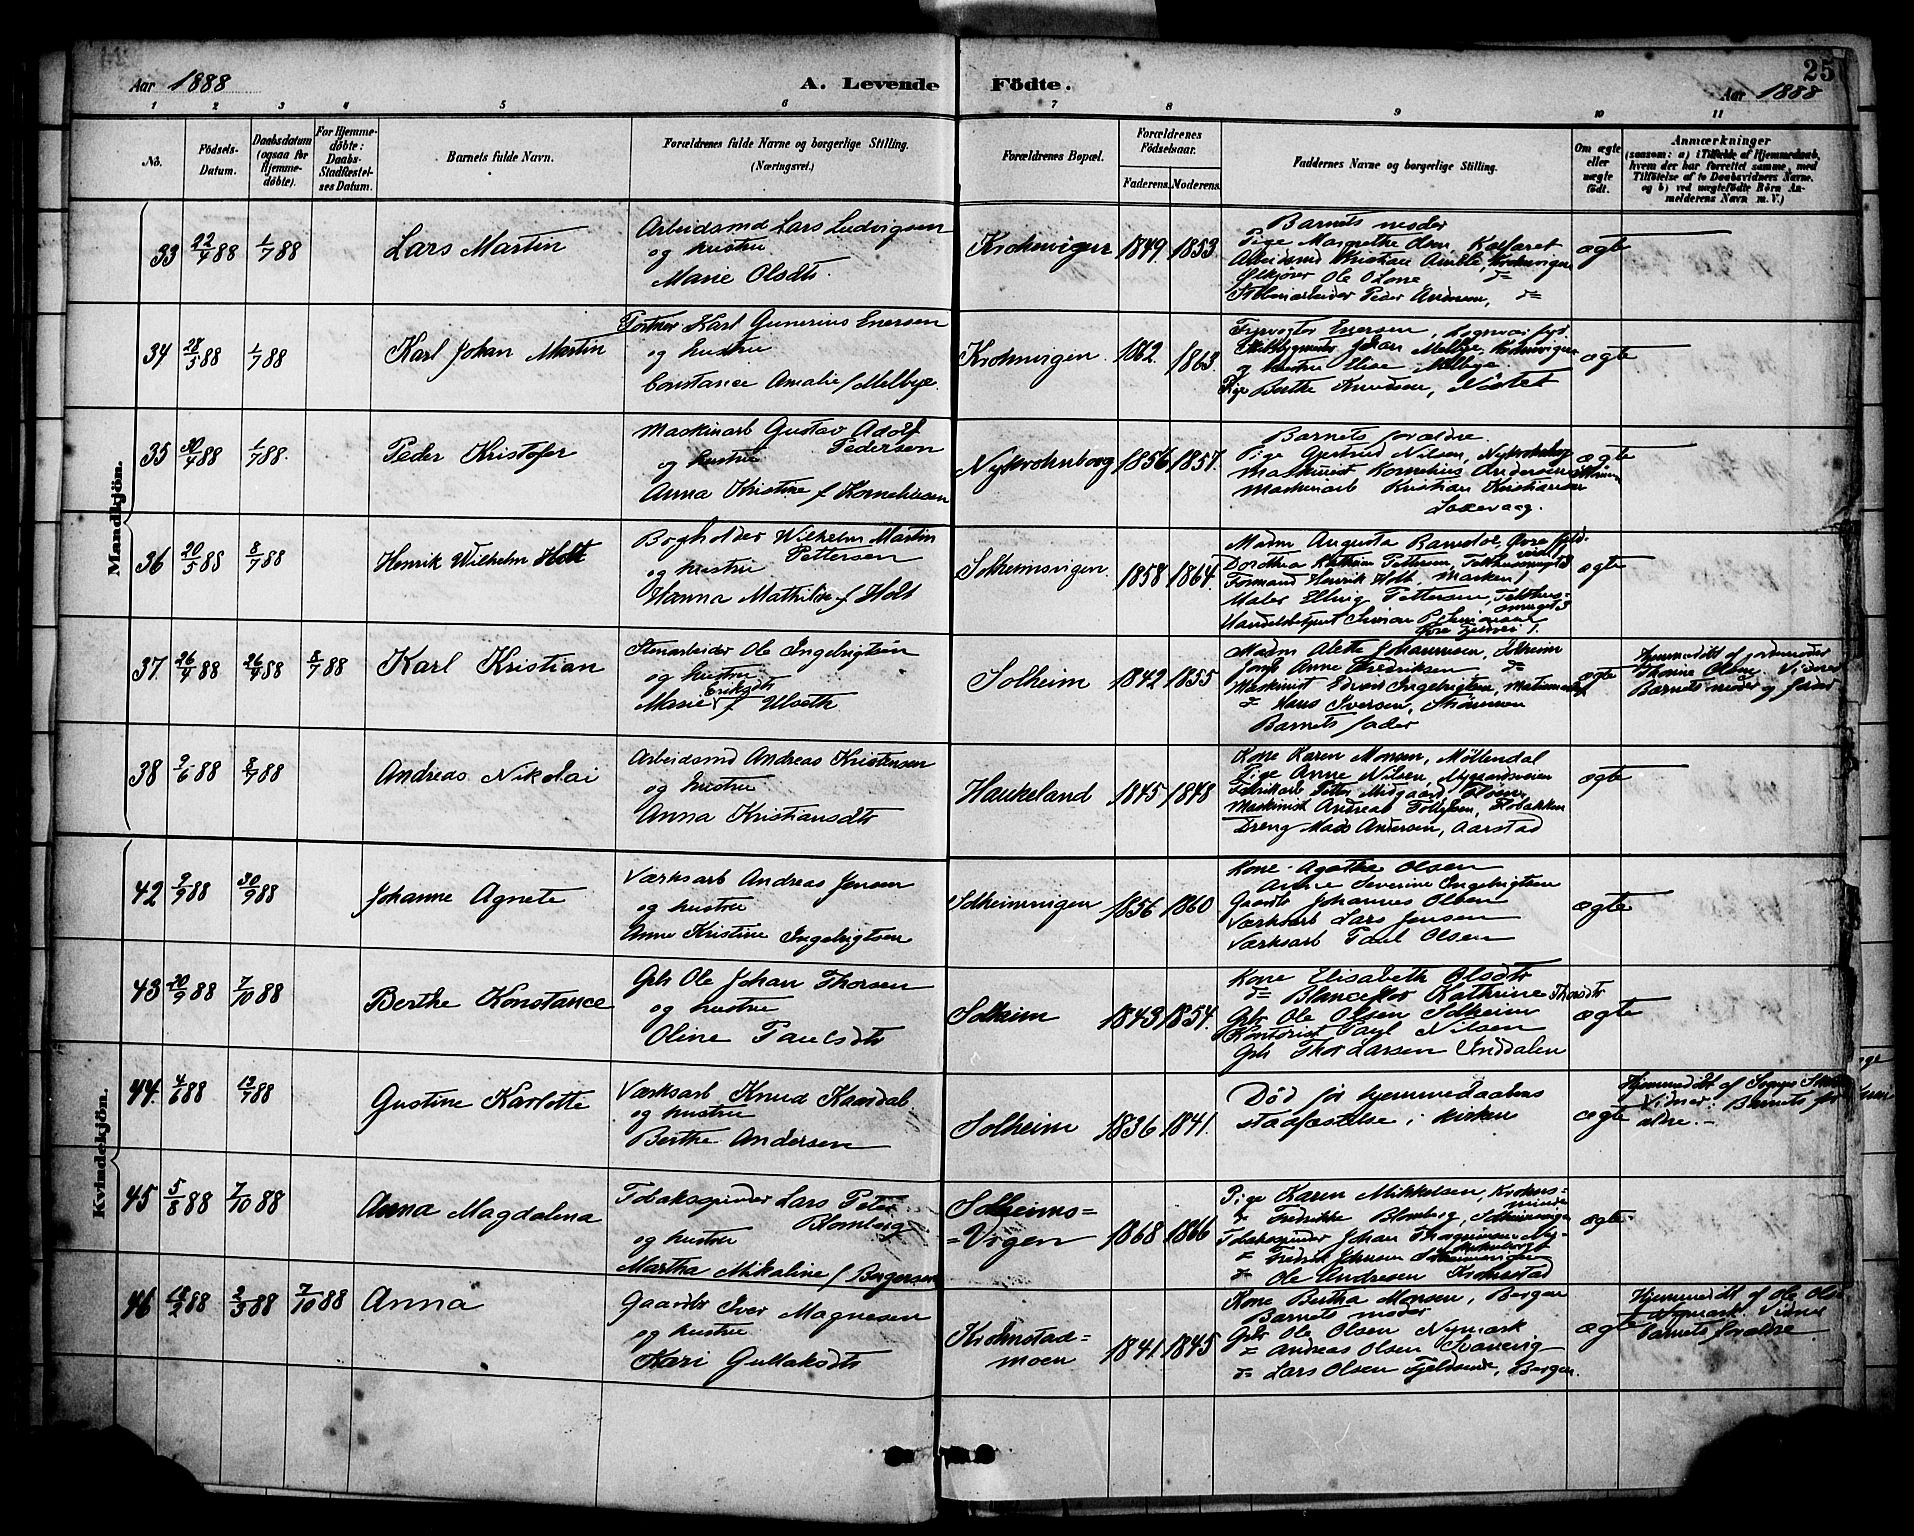 25
Aar 1888
A. Levende
Födte.
Aar 1888
1 2 3 4 5 6 7 8 9 10 11
No.
Födsels-Datum.
Daabsdatum (ogsaa for Hjemme-döbte).
For Hjemme-döbte: Daabs-Stadfæstel-ses Datum.
Barnets fulde Navn.
Forældrenes fulde Navne og borgerlige Stilling.
(Næringsvei.)
Forældrenes Bopæl.
Forældrenes Födselsaar.
Faderens. Moderens.
Faddernes Navne og borgerlige Stilling.
Om ægte eller uægte födt.
Anmærkninger
(saasom: a) i Tilfælde af Hjemmedaab, hvem der har forrettet samme, med Tilföielse af to Daabsvidners Navne. og b) ved uægtefödte Börn An-melderens Navn m. V.)
Mandkjön.
33 22/4 88 1/7 88 Lars Martin
Arbeidsmd Lars Ludvigsen
og hustru
Marie Olsdtr.
Krohnvigen 1849 1853
Barnets moder
Pige Margrethe Olsen, Kalfaret
Arbeidsmd Kristian Amble, Krohnvigen
Ole
Peder
ægte
34 28/5 88 1/7 88 Karl Johan Martin
Portner Karl Gunerius Enersen
og hustru
Constance Amalie f Melbye.
Krohnvigen 1862 1863
Fyrvogter Enersen,
Johan Melbye, Krohnvigen
og hustru Elise Melbye
Pige Berthe Knudsen, Nöstet
ægte
35 30/4 88 1/7 88 Peder Kristofer
Maskinarb Gustav Adolf
Pedersen
og hustru
Anna Kristine f Korneliusen
Nykrohnborg 1856 1857
Barnets forældre
Pige Gjertrud Nilsen, Nykrohnborg
Maskinist Kornelius Andersen
Maskinarb Kristian Kristiansen
Laxevaag.
ægte
36 20/5 88 8/7 88 Henrik Wilhelm Holt
Bogholder Wilhelm Martin
Pettersen
og hustru
Hanna Mathilde f Holt
Solheimsvigen 1858 1864
Madm Augusta
Dorothea Kathrine Pettersen,
Formand Henrik Holt, Marken
Maler Pettersen,
Simon
ægte
37 26/4 88 26/4 88 8/7 88 Karl Kristian
Stenarbeider Ole Ingebrigtsen
og hustru
Eriksdtr
Marie f Ulveth
Solheim 1842 1855
Madm Alette Johannesen, Solheim
Anne Fredriksen do
Maskinist Ingebrigtsen,
do Hans Iversen,
Barnets fader
ægte
Hjemmedöbt af jordemoder
Thomine Olsen Vidner
Barnets moder og fader
38 9/6 88 8/7 88 Andreas Nikolai
Arbeidsmd Andreas Kristensen
og hustru
Anna Kristiansdtr
Haukeland 1845 1848
Kone Karen Monsen, Möllendal
Pige Anne Nilsen, Nygaardsveien
Fabrikarb Petter
Maskinist Andreas
Dreng Mads Andersen, Aarstad
ægte
Kvindekjön.
42 9/9 88 30/9 88 Johanne Agnete
Værksarb Andreas Jensen
og hustru
Anne Kristine Ingebrigtsen
Solheimsvigen 1856 1860
Kone Agathe Olsen
Anne Severine Ingebrigtsen
Gaardbr Johannes Olsen
Værksarb Lars Jensen
Værksarb Paul Olsen
ægte
43 20/9 88 7/10 88 Berthe Konstance
Gbr Ole Johan Thorsen
og hustru
Oline Paulsdtr
Solheim 1843 1854
Kone Elisabeth Olsdtr
do Blanceflor Kathrine Thorsdtr
Gbr Ole Olsen Solheim
Kontorist Paul Nilsen
Gbr Thor Larsen Inddalen
ægte
44 4/6 88 13/7 88 Gustine Karlotte
Værksarb Knud Kaardal
og hustru
Berthe Andersen
Solheim 1836 1841
Död för hjemmedaabens
stadfæstelse i kirken
ægte
Hjemmedöbt af
Vidner: Barnets for
ældre.
45 5/8 88 7/10 88 Anna Magdalena
Tobakspinder Lars Peter
Blomberg
og hustru
Martha Mikaline f Bergersen
Solheims=
=Vigen 1868 1866
Pige Karen Mikkelsen, Krohns=
minde
do Fredrikke Blomberg, Solheimsvigen
Tobakspinder Johan
do Fredrik Johnsen
do Ole Andresen Krohnstad
ægte
46 2/3 88 7/10 88 Anna
Gaardbr Iver Magnesen
og hustru
Kari Gullaksdtr
Krohnstad=
moen 1841 1845
Kone Bertha Monsen, Bergen
Barnets moder
Gbr Ole Olsen Nymark
do Andreas Olsen
do Lars Olsen Bergen.
ægte
Hjemmedöbt af Ole Olsen
Nymark Vidner
barnets forældre